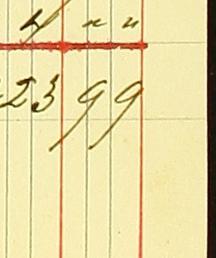 4 " "
23 99